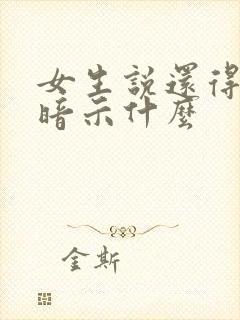 女生説還得
暗示什麼
金斯